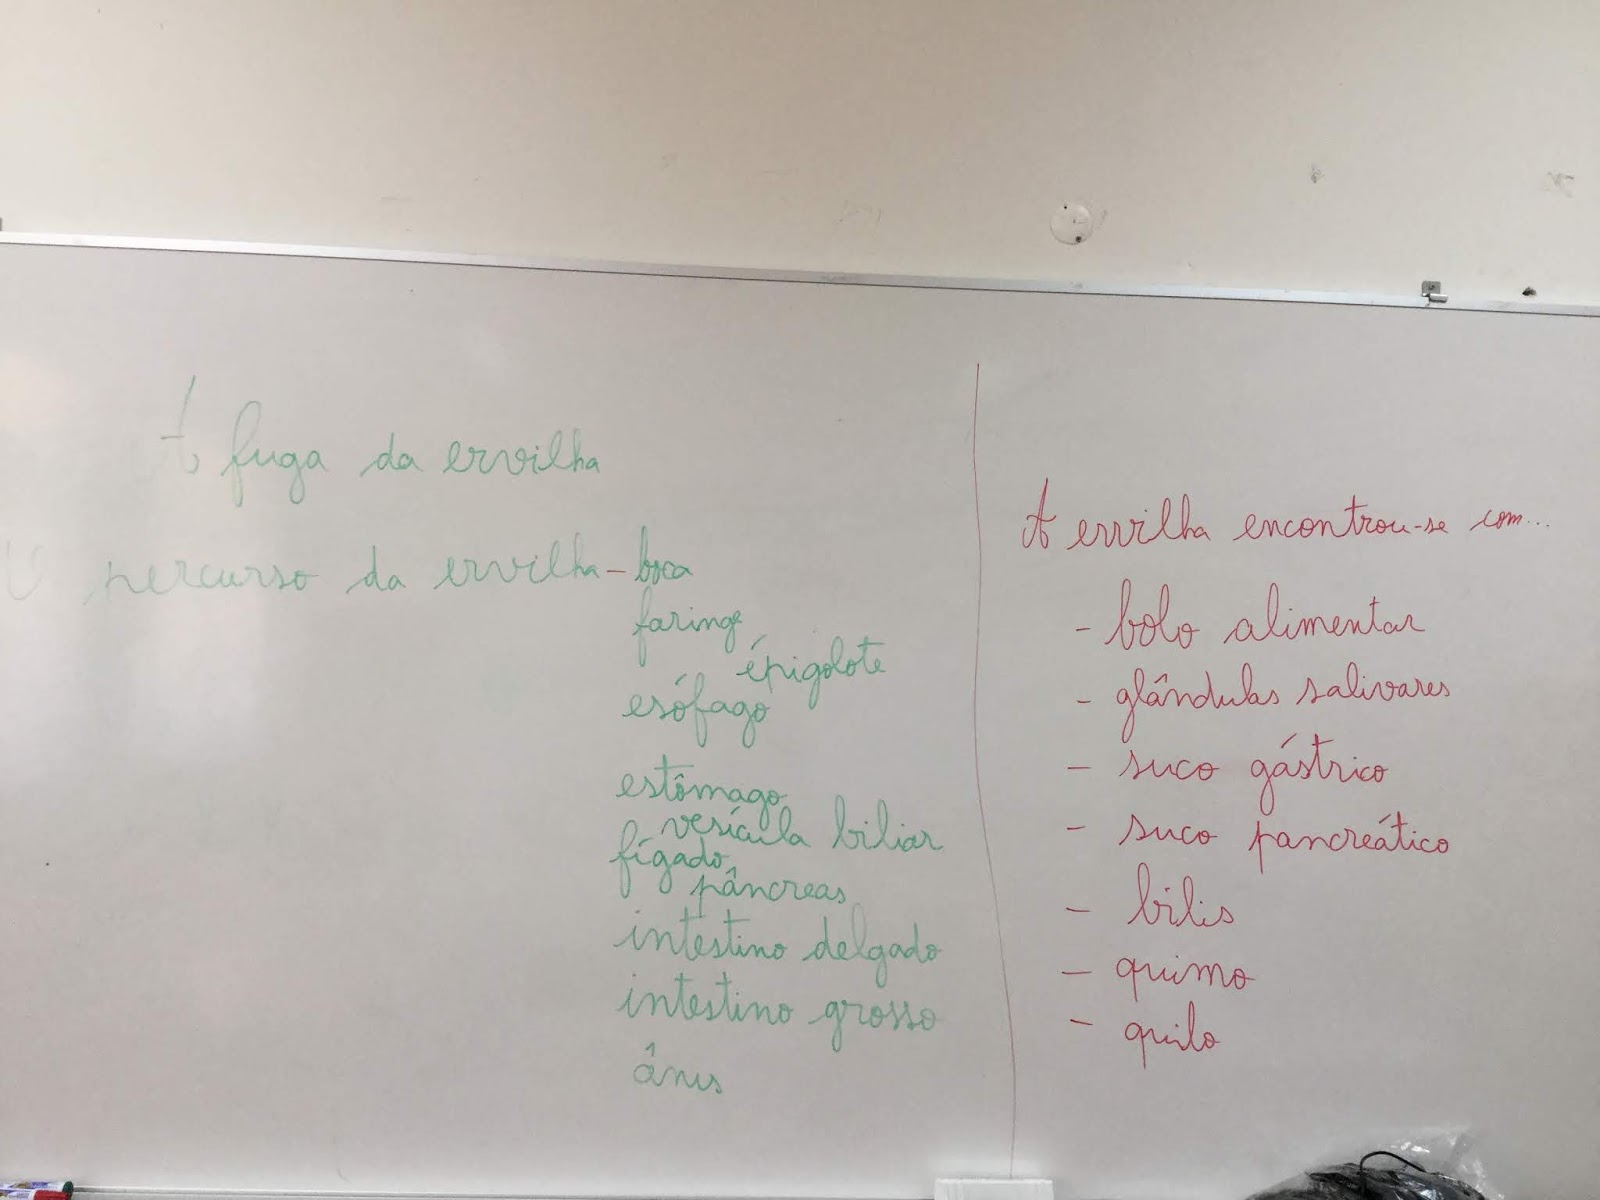 A fuga da ervilha
O percurso da ervilha - boca
faringe
épigolote
esófago
estômago
vesícula biliar
fígado
pâncreas
intestino delgado
intestino grosso
ânus
A ervilha encontrou-se com...
- bolo alimentar
- glândulas salivares
- suco gástrico
- suco pancreático
- bilis
- quimo
- quilo